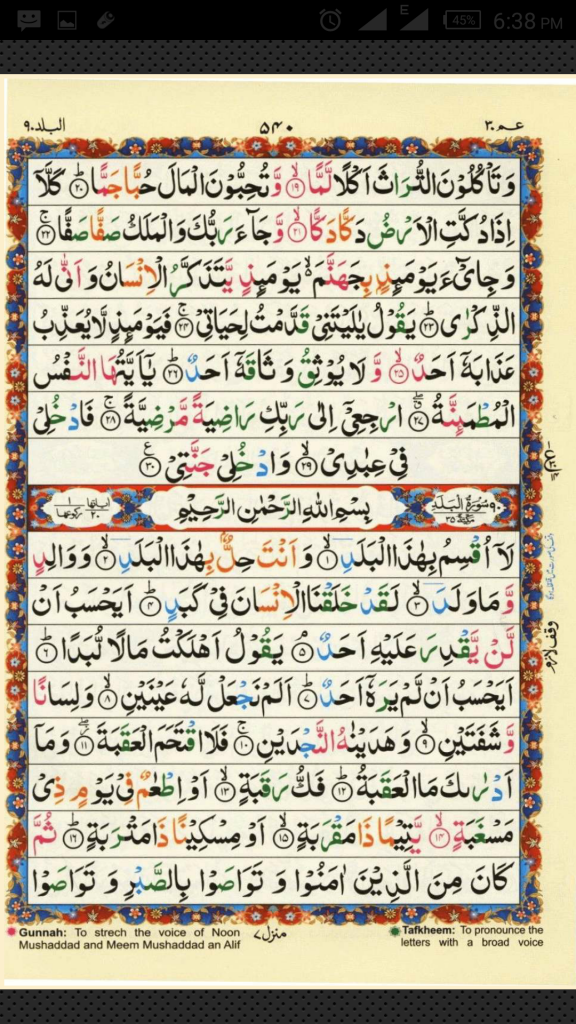 45% 6:38 PM
E
عم ٣٠
٥٤٠
البلد ٩٠
وَتَاْكُلُوْنَ التُّرَاثَ اَكْلًا لَّمًّا ۙ﴿۱۹﴾ وَّتُحِبُّوْنَ الْمَالَ حُبًّا جَمًّا ؕ﴿۲۰﴾ كَلَّاۤ
اِذَا دُكَّتِ الْاَرْضُ دَكًّا دَكًّا ۙ﴿۲۱﴾ وَّجَآءَ رَبُّكَ وَالْمَلَكُ صَفًّا صَفًّا ۚ﴿۲۲﴾
وَجِایْٓءَ یَوْمَئِذٍۭ بِجَهَنَّمَ ۙ۬ یَوْمَئِذٍ یَّتَذَكَّرُ الْاِنْسَانُ وَاَنّٰی لَهُ
الذِّكْرٰی ؕ﴿۲۳﴾ یَقُوْلُ یٰلَیْتَنِیْ قَدَّمْتُ لِحَیَاتِیْ ۚ﴿۲۴﴾ فَیَوْمَئِذٍ لَّا یُعَذِّبُ
عَذَابَهٗۤ اَحَدٌ ۙ﴿۲۵﴾ وَّلَا یُوْثِقُ وَثَاقَهٗۤ اَحَدٌ ؕ﴿۲۶﴾ یٰۤاَیَّتُهَا النَّفْسُ
الْمُطْمَىِٕنَّةُ ۗۖ﴿۲۷﴾ ارْجِعِیْۤ اِلٰی رَبِّكِ رَاضِیَةً مَّرْضِیَّةً ۚ﴿۲۸﴾ فَادْخُلِیْ
فِیْ عِبٰدِیْ ۙ﴿۲۹﴾ وَادْخُلِیْ جَنَّتِیْ ۠﴿۳۰﴾
٩٠ سُوْرَةُ الْبَلَدِ مَكِّیَّةٌ ٣٥ بِسْمِ اللّٰهِ الرَّحْمٰنِ الرَّحِیْمِ اٰیاتها ٢٠ ركوعها ١
لَاۤ اُقْسِمُ بِهٰذَا الْبَلَدِ ۙ﴿۱﴾ وَاَنْتَ حِلٌّۢ بِهٰذَا الْبَلَدِ ۙ﴿۲﴾ وَوَالِدٍ
وَّمَا وَلَدَ ۙ﴿۳﴾ لَقَدْ خَلَقْنَا الْاِنْسَانَ فِیْ كَبَدٍ ؕ﴿۴﴾ اَیَحْسَبُ اَنْ
لَّنْ یَّقْدِرَ عَلَیْهِ اَحَدٌ ۘ﴿۵﴾ یَقُوْلُ اَهْلَكْتُ مَالًا لُّبَدًا ؕ﴿۶﴾
اَیَحْسَبُ اَنْ لَّمْ یَرَهٗۤ اَحَدٌ ؕ﴿۷﴾ اَلَمْ نَجْعَلْ لَّهٗ عَیْنَیْنِ ۙ﴿۸﴾ وَلِسَانًا
وَّشَفَتَیْنِ ۙ﴿۹﴾ وَهَدَیْنٰهُ النَّجْدَیْنِ ۚ﴿۱۰﴾ فَلَا اقْتَحَمَ الْعَقَبَةَ ۖ﴿۱۱﴾ وَمَاۤ
اَدْرٰىكَ مَا الْعَقَبَةُ ؕ﴿۱۲﴾ فَكُّ رَقَبَةٍ ۙ﴿۱۳﴾ اَوْ اِطْعٰمٌ فِیْ یَوْمٍ ذِیْ
مَسْغَبَةٍ ۙ﴿۱۴﴾ یَّتِیْمًا ذَا مَقْرَبَةٍ ۙ﴿۱۵﴾ اَوْ مِسْكِیْنًا ذَا مَتْرَبَةٍ ؕ﴿۱۶﴾ ثُمَّ
كَانَ مِنَ الَّذِیْنَ اٰمَنُوْا وَتَوَاصَوْا بِالصَّبْرِ وَتَوَاصَوْا
وقف لازم
منزل ٧
Gunnah: To strech the voice of Noon
Mushaddad and Meem Mushaddad an Alif
Tafkheem: To pronounce the
letters with a broad voice